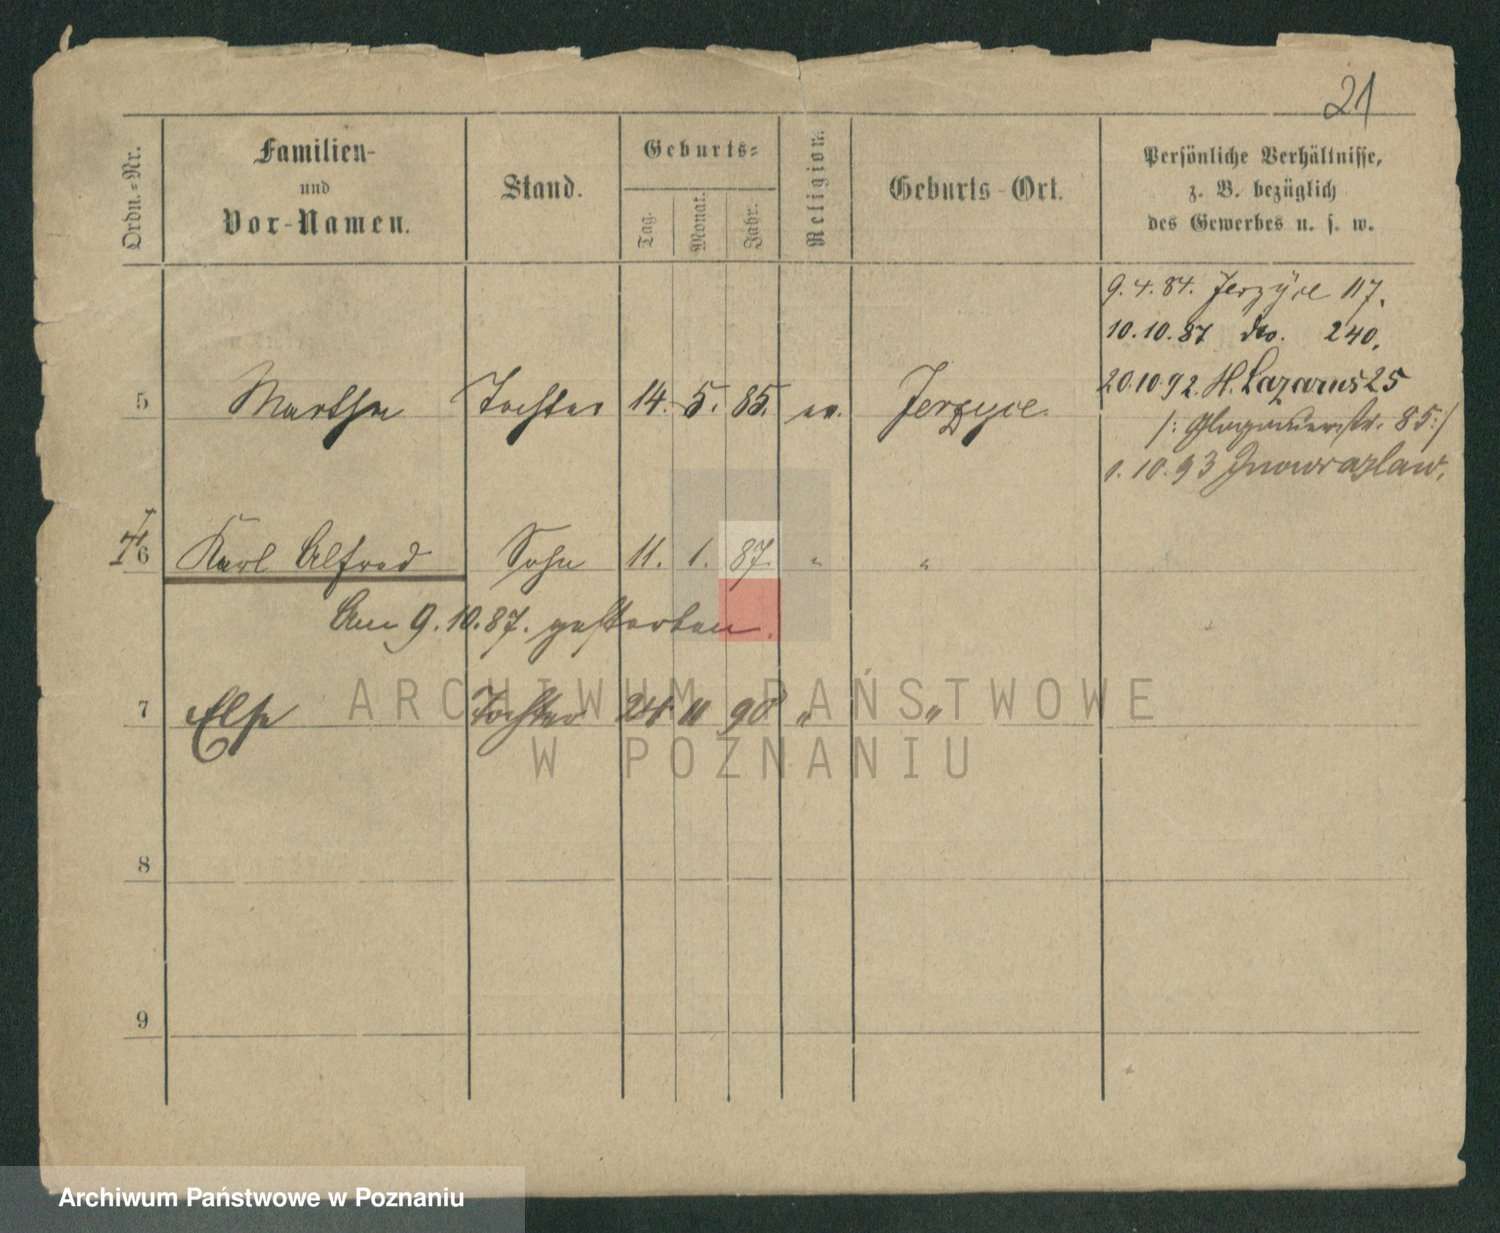 21
Ordn.-Nr.
Familien-
und
Vor-Namen.
Stand.
Geburts-
Tag.
Monat.
Jahr.
Religion.
Geburts-Ort.
Persönliche Verhältnisse,
z. B. bezüglich
des Gewerbes u. s. w.
9.4.84. Jerzyce 117.
10.10.87 dto. 240.
20.10.92. St. Lazarus 25
/: Glogauerstr. 85 :/
1.10.93 Inowrazlaw.
5 Martha Tochter 14. 5. 85. ev. Jerzyce
6 Karl Alfred Sohn 11. 1. 87. " "
Am 9.10.87. gestorben.
7 Else Tochter 24 11 90 " "
8
9
ARCHIWUM PAŃSTWOWE
W POZNANIU
Archiwum Państwowe w Poznaniu